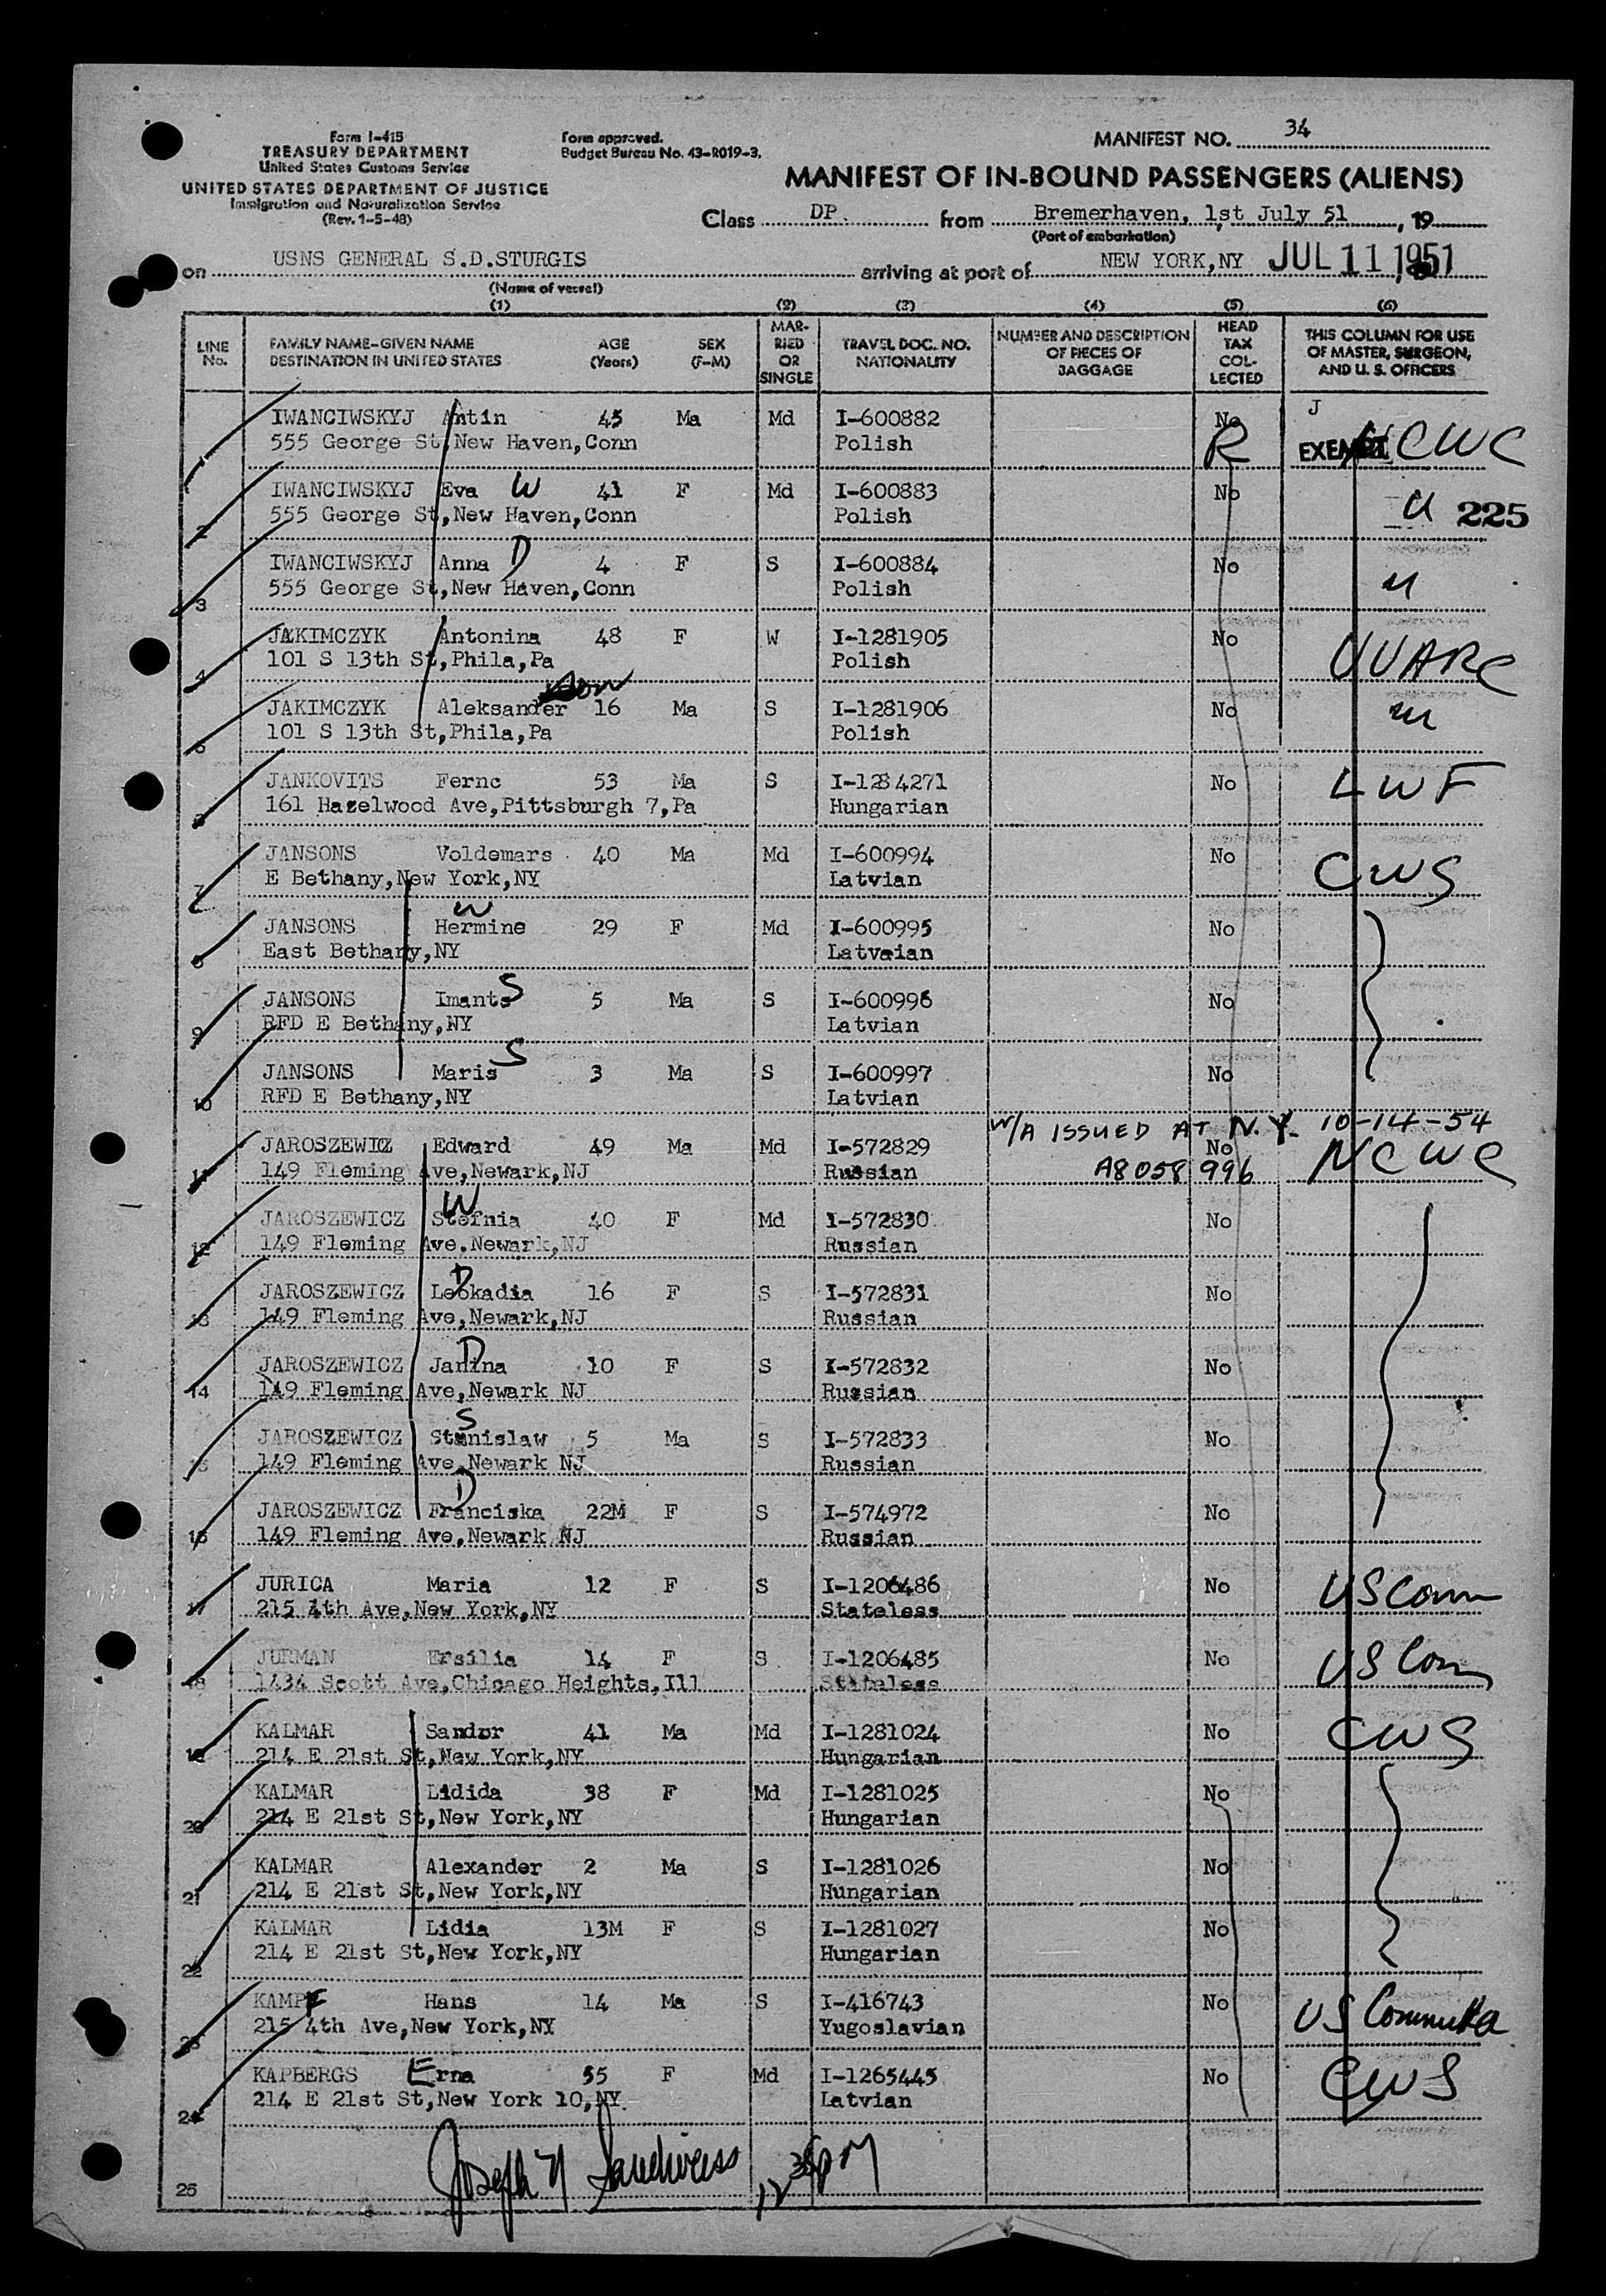 Form I-415
TREASURY DEPARTMENT
United States Customs Service
UNITED STATES DEPARTMENT OF JUSTICE
Immigration and Naturalization Service
(Rev. 1-5-48)
Form approved.
Budget Bureau No. 43-R019-3.
MANIFEST NO. 34
MANIFEST OF IN-BOUND PASSENGERS (ALIENS)
Class DP. from Bremerhaven, 1st July 51, 19
(Port of embarkation)
on USNS GENERAL S.D.STURGIS arriving at port of NEW YORK,NY JUL 11 1951
(Name of vessel)
(1) (2) (3) (4) (5) (6)
LINE No.
FAMILY NAME-GIVEN NAME
DESTINATION IN UNITED STATES
AGE (Years)
SEX (F-M)
MARRIED OR SINGLE
TRAVEL DOC. NO.
NATIONALITY
NUMBER AND DESCRIPTION OF PIECES OF BAGGAGE
HEAD TAX COLLECTED
THIS COLUMN FOR USE OF MASTER, SURGEON, AND U. S. OFFICERS
1 IWANCIWSKYJ Antin 45 Ma Md I-600882 No J
555 George St,New Haven,Conn Polish R EXEMPT NCWC
2 IWANCIWSKYJ Eva W 41 F Md I-600883 No
555 George St,New Haven,Conn Polish u 225
3 IWANCIWSKYJ Anna D 4 F S I-600884 No
555 George St,New Haven,Conn Polish u
4 JAKIMCZYK Antonina 48 F W I-1281905 No
101 S 13th St,Phila,Pa Polish UUARC
5 JAKIMCZYK Aleksander son 16 Ma S I-1281906 No
101 S 13th St,Phila,Pa Polish
6 JANKOVITS Fernc 53 Ma S I-1284271 No LWF
161 Hazelwood Ave,Pittsburgh 7,Pa Hungarian
7 JANSONS Voldemars 40 Ma Md I-600994 No
E Bethany,New York,NY Latvian CWS
8 JANSONS W Hermine 29 F Md I-600995 No
East Bethany,NY Latvaian
9 JANSONS Imants S 5 Ma S I-600996 No
RFD E Bethany,NY Latvian
10 JANSONS Maris S 3 Ma S I-600997 No
RFD E Bethany,NY Latvian
W/A ISSUED AT N.Y. 10-14-54
11 JAROSZEWICZ Edward 49 Ma Md I-572829 No NCWC
149 Fleming Ave,Newark,NJ Russian A8 058 996
12 JAROSZEWICZ W Stefnia 40 F Md I-572830 No
149 Fleming Ave.Newark,NJ Russian
13 JAROSZEWICZ D Leokadia 16 F S I-572831 No
149 Fleming Ave,Newark,NJ Russian
14 JAROSZEWICZ D Janina 10 F S I-572832 No
149 Fleming Ave,Newark NJ Russian
15 JAROSZEWICZ S Stanislaw 5 Ma S I-572833 No
149 Fleming Ave,Newark NJ Russian
16 JAROSZEWICZ D Franciska 22M F S I-574972 No
149 Fleming Ave,Newark NJ Russian
17 JURICA Maria 12 F S I-1206486 No US Comm
215 4th Ave,New York,NY Stateless
18 JURMAN Ersilia 14 F S I-1206485 No US Com
1434 Scott Ave,Chicago Heights,Ill Stateless
19 KALMAR Sandor 41 Ma Md I-1281024 No CWS
214 E 21st St,New York,NY Hungarian
20 KALMAR Lidida 38 F Md I-1281025 No
214 E 21st St,New York,NY Hungarian
21 KALMAR Alexander 2 Ma S I-1281026 No
214 E 21st St,New York,NY Hungarian
22 KALMAR Lidia 13M F S I-1281027 No
214 E 21st St,New York,NY Hungarian
23 KAMPF Hans 14 Ma S I-416743 No US Committee
215 4th Ave,New York,NY Yugoslavian
24 KAPBERGS Erna 55 F Md I-1265445 No CWS
214 E 21st St,New York 10,NY. Latvian
25
Joseph